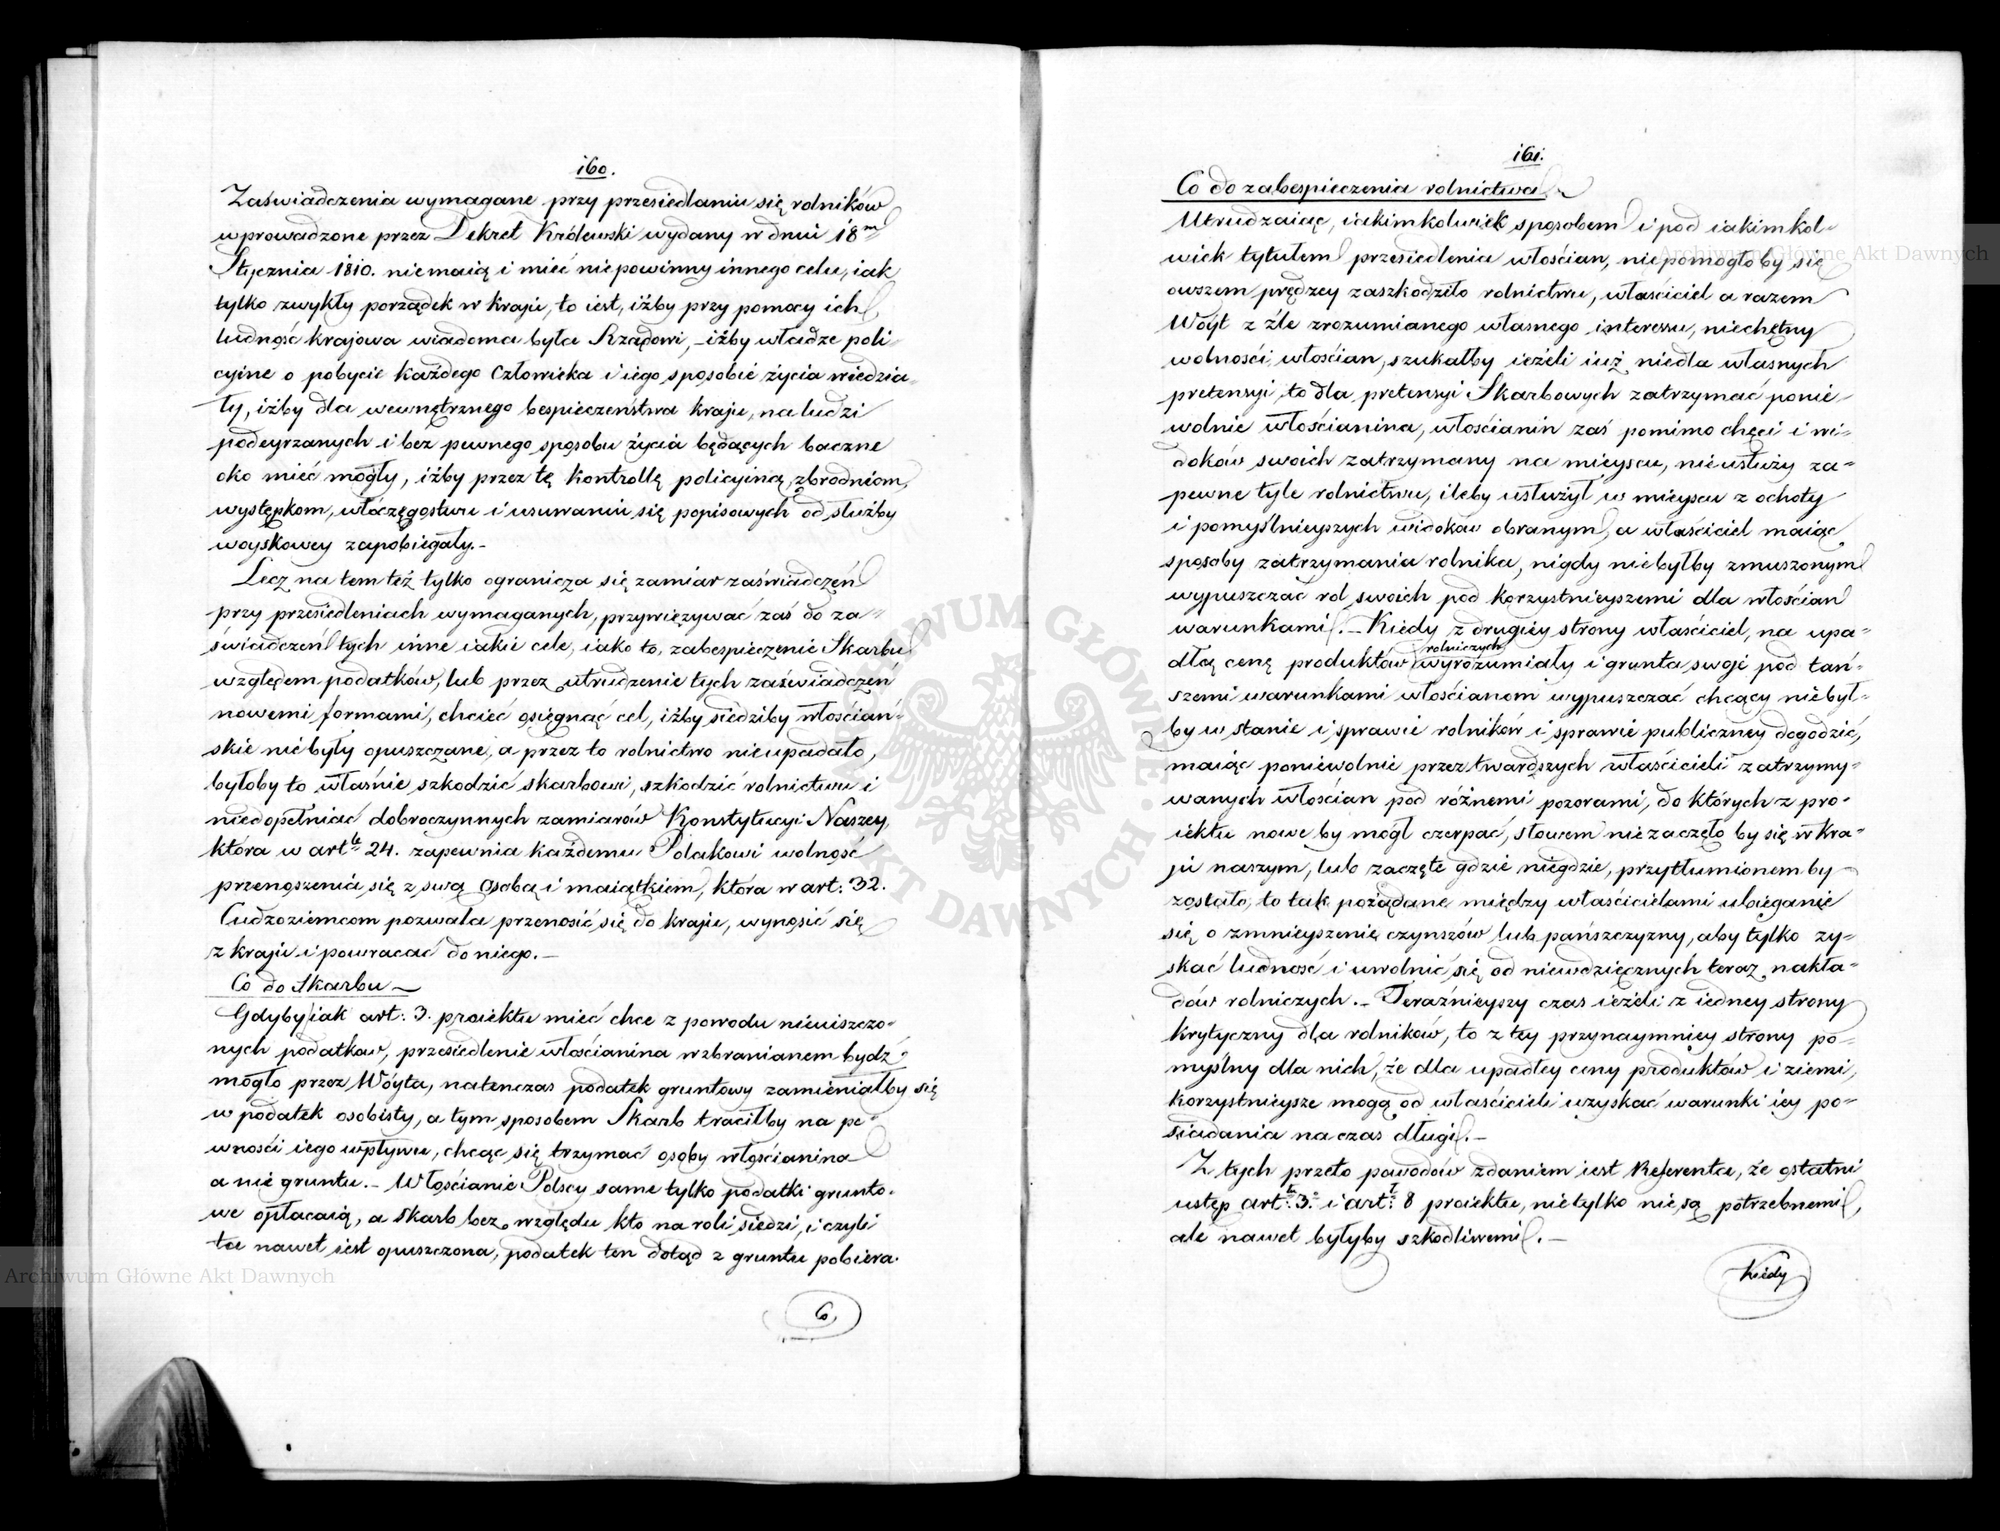 160.
Zaświadczenia wymagane przy przesiedlaniu się rolników
wprowadzone przez Dekret Królewski wydany w dniu 18m
Stycznia 1810. niemaią i mieć niepowinny innego celu, iak
tylko zwykły porządek w kraju, to iest, iżby przy pomocy ich
ludność krajowa wiadoma była Rządowi, – iżby władze poli-
cyine o pobycie każdego człowieka i iego sposobie życia wiedzia-
ły, iżby dla wewnętrznego bespieczeństwa kraju, na ludzi
podeyrzanych i bez pewnego sposobu życia będących baczne
oko mieć mogły, iżby przez tę kontrollę policyiną zbrodniom,
występkom, włóczęgostwu i usuwaniu się popisowych od służby
woyskowey zapobiegały. –
Lecz na tem też tylko ogranicza się zamiar zaświadczeń
przy przesiedleniach wymaganych, przywięzywać zaś do za-
świadczeń tych inne iakie cele, iako to, zabespieczenie Skarbu
względem podatków, lub przez utrudzenie tych zaświadczeń
nowemi formami, chcieć osięgnąć cel, iżby siedziby włościań-
skie niebyły opuszczane, a przez to rolnictwo nieupadało,
byłoby to właśnie szkodzić skarbowi, szkodzić rolnictwu i
niedopełniać dobroczynnych zamiarów Konstytucyi Naszey,
która w artle 24. zapewnia każdemu Polakowi wolność
przenoszenia się z swą osobą i maiątkiem, która w art: 32.
Cudzoziemcom pozwala przenosić się do kraju, wynosić się
z kraju i powracać do niego. –
Co do Skarbu –
Gdyby iak art: 3. proiektu mieć chce z powodu nieuiszczo-
nych podatkow, przesiedlenie włościanina wzbranianem bydź
mogło przez Wóyta, natenczas podatek gruntowy zamieniałby się
w podatek osobisty, a tym sposobem Skarb traciłby na pe-
wnośći iego wpływu, chcąc się trzymać osoby włościanina
a nie gruntu. – Włościanie Polscy same tylko podatki grunto-
we opłacaią, a skarb bez względu kto na roli siedzi, i czyli
ta nawet iest opuszczona, podatek ten dotąd z gruntu pobiera.
Co
161.
Co do zabespieczenia rolnictwa
Utrudzaiąc, iakimkolwiek sposobem i pod iakimkol-
wiek tytułem przesiedlenia włościan, niepomogłoby się
owszem prędzey zaszkodziło rolnictwu, właściciel a razem
Wóyt z źle zrozumianego własnego interessu, niechętny
wolnośći włościan, szukałby ieżeli iuż niedla własnych
pretensyi, to dla pretensyi Skarbowych zatrzymać ponie-
wolnie włościanina, włościanin zaś pomimo chęci i wi-
doków swoich zatrzymany na mieyscu, nieusłuży za-
pewne tyle rolnictwu, ileby usłużył w mieyscu z ochoty
i pomyślnieyszych widoków obranym, a właściciel maiąc
sposoby zatrzymania rolnika, nigdy niebyłby zmuszonym
wypuszczać rol swoich pod korzystnieyszemi dla włościan
warunkami. – Kiedy z drugiéy strony właściciel, na upa-
dłą cenę produktów rolniczych wyrozumiały i grunta swoje pod tań-
szemi warunkami włościanom wypuszczać chcący niebył-
by w stanie i sprawie rolników i sprawie publiczney dogodzić,
maiąc poniewolnie przez twardszych właścicieli zatrzymy-
wanych włościan pod różnemi pozorami, do których z pro-
iektu nowe by mógł czerpać, słowem nie zaczęło by się w kra-
ju naszym, lub zaczęte gdzie niegdzie, przytłumionem by
zostało, to tak pożądane między właścicielami ubieganie
się o zmnieyszenie czynszów lub pańszczyzny, aby tylko zy-
skać ludność i uwolnić się od niewdzięcznych teraz nakła-
dów rolniczych. – Teraźnieyszy czas ieżeli z iedney strony
krytyczny dla rolników, to z tey przynaymniey strony po-
myślny dla nich, że dla upadłey ceny produktów i ziemi,
korzystnieysze mogą od właścicieli uzyskać warunki iey po-
siadania na czas długi. –
Z tych przeto powodów zdaniem iest Referenta, że ostatni
ustęp art: 3. i art: 8 proiektu, nietylko nie są potrzebnemi,
ale nawet byłyby szkodliwemi. –
Kiedy
Archiwum Główne Akt Dawnych
Archiwum Główne Akt Dawnych
ARCHIWUM GŁÓWNE AKT DAWNYCH